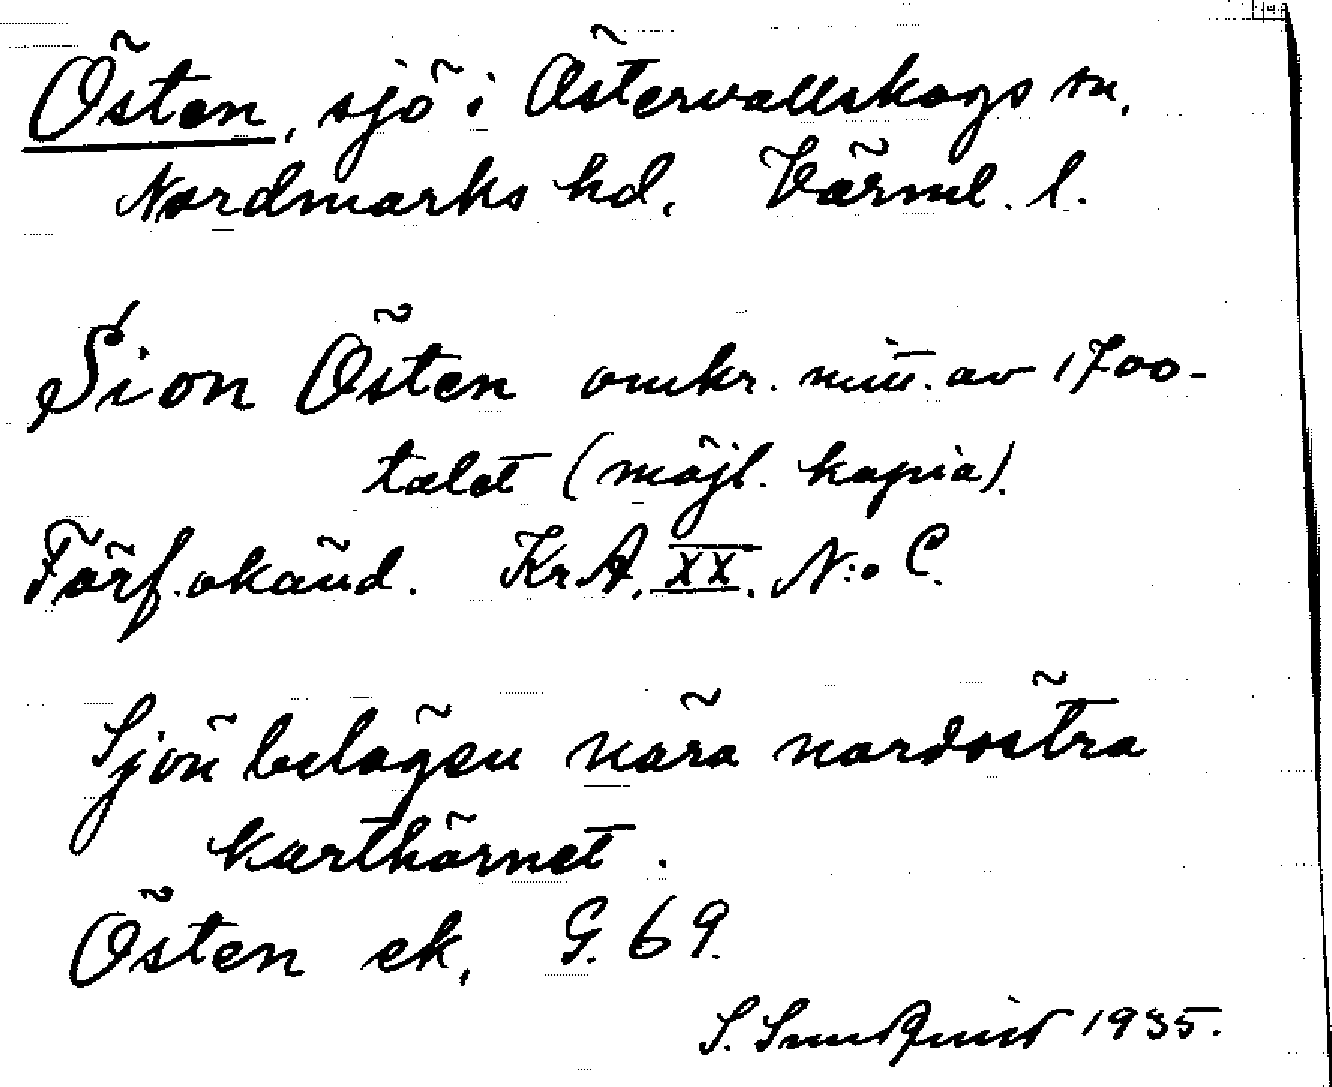 Östen, sjö i Östervallskogs sn,
Nordmarks hd. Värml. l.
Sion Östen omkr. mitt. av 1700-
talet (möjl. kopia).
Förf. okänd. Kr.A. XX. N:o C.
Sjön belägen nära nordöstra
karthörnet.
Östen ek. G. 69.
S. 1935.